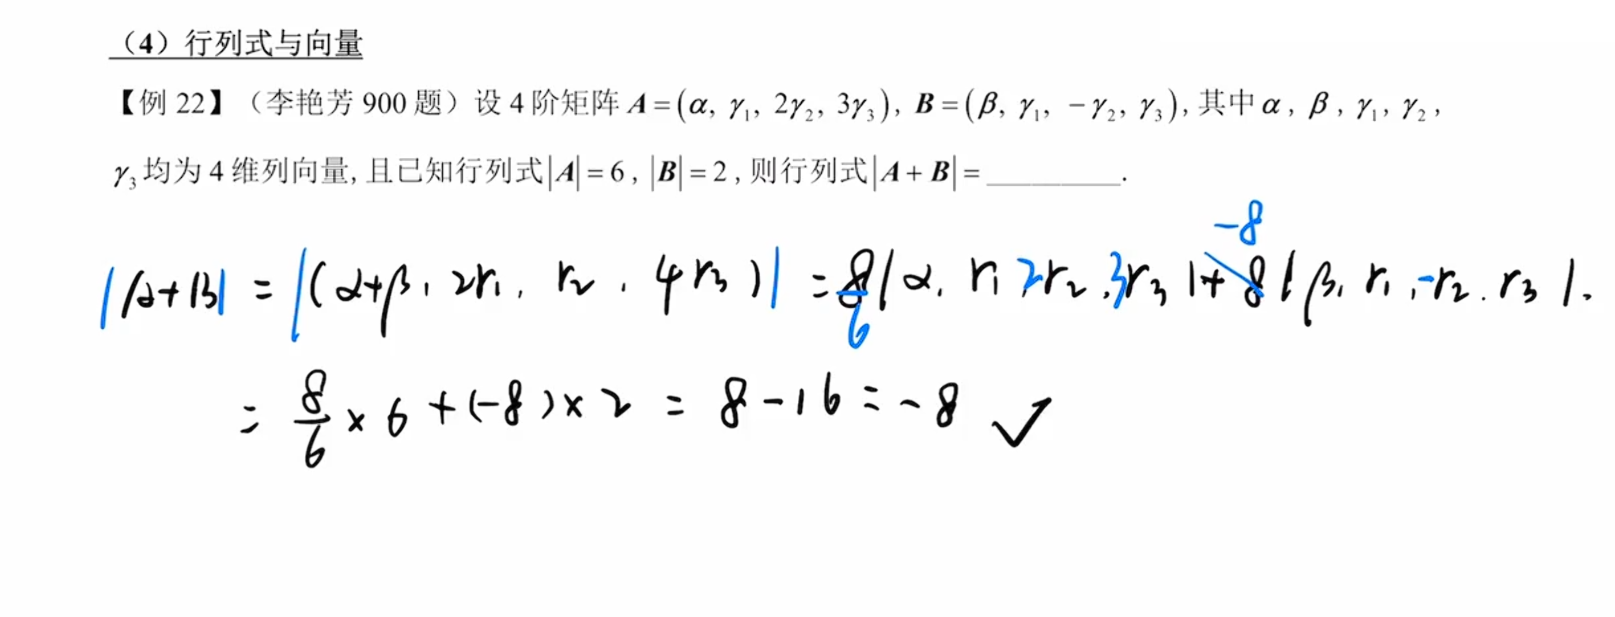 （4）行列式与向量
【例 22】（李艳芳 900 题）设 4 阶矩阵 A＝(α, γ₁, 2γ₂, 3γ₃), B＝(β, γ₁, −γ₂, γ₃), 其中 α, β, γ₁, γ₂,
γ₃ 均为 4 维列向量, 且已知行列式|A|＝6, |B|＝2, 则行列式|A + B|＝________.
-8
|A+B| = |(α+β, 2r₁, r₂, 4r₃)| = 8/6 |α, r₁ 2r₂, 3r₃| + 8 |β, r₁, -r₂, r₃|.
= 8/6 × 6 + (-8) × 2 = 8 - 16 = -8 ✓